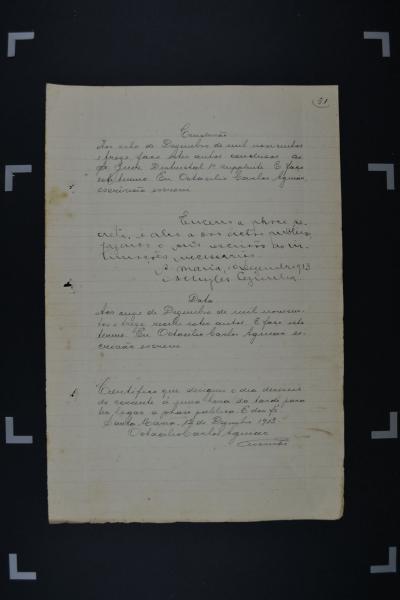 51
Conclusão
Aos oito de Dezembro de mil novecentos
e treze faço estes autos conclusos ao
Juiz Districtal 1º supplente. E faço
este termo. Eu Octacilio Carlos Aguiar,
escrivão escrevi
Encerro a phase se-
creta, e abro a dos actos publicos,
fazendo o snr escrivão as in-
timações necessarias.
S. Maria, 10 Dezembro 1913
Data
Aos onze de Dezembro de mil novecen-
tos e treze recebi estes autos. E faço este
termo. Eu Octacilio Carlos Aguiar es-
crivão escrevi
Certifico que designei o dia dezeseis
do corrente á uma hora da tarde para
ter logar a phase publica. E dou fé.
Santa Maria, 12 de Dezembro 1913.
Octacilio Carlos Aguiar
Escrivão